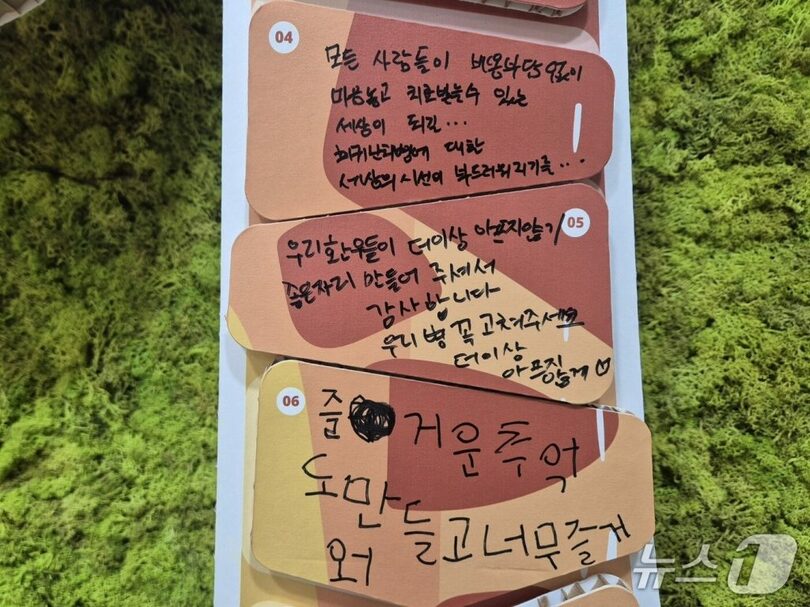 04
모든 사람들이 비용부담 없이
마음놓고 치료받을수 있는
세상이 되길...
희귀난치병에 대한
세상의 시선이 부드러워지기를...
05
우리환우들이 더이상 아프지않기
좋은자리 만들어 주셔서
감사합니다
우리병 꼭 고쳐주세요
더이상
아프지않게♡
06
즐거운추억
도만들고너무즐거
워
뉴스1